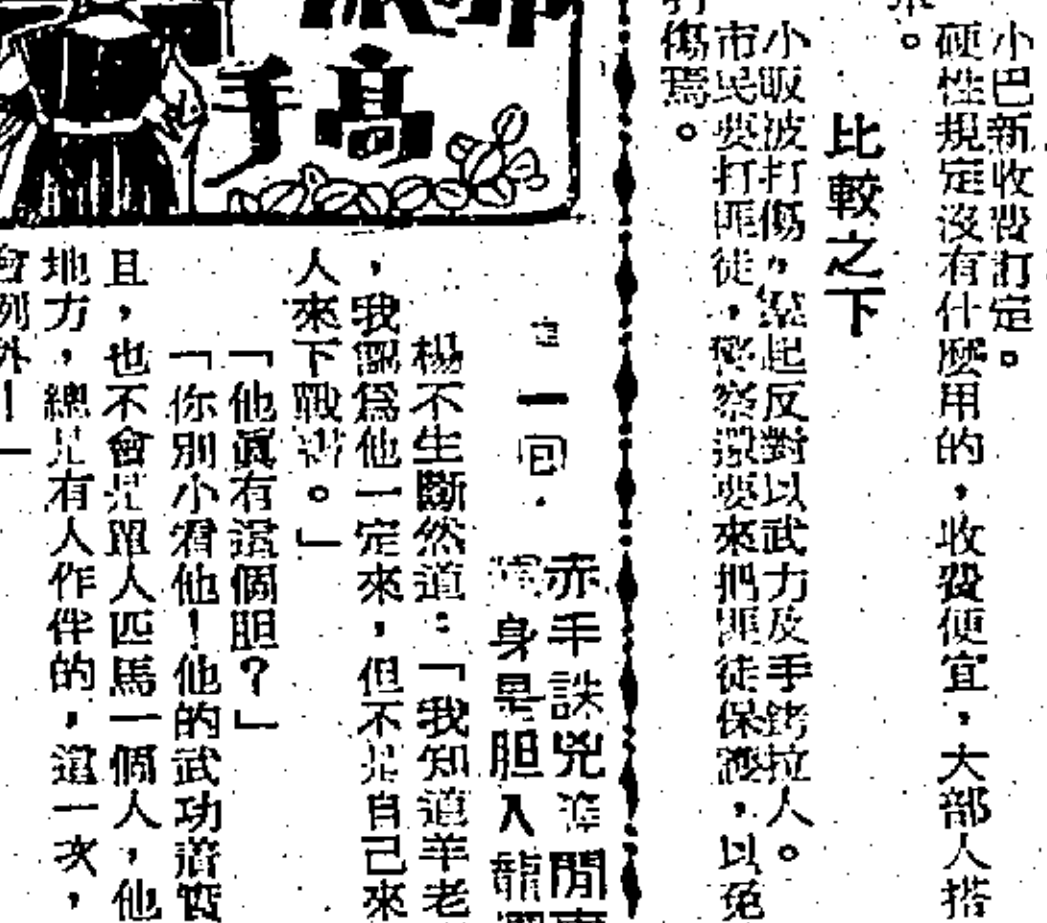 小巴新收費訂定。
硬性規定沒有什麼用的,收費便宜,大部人搭
。
比較之下
小販被打傷,羣起反對以武力及手銬拉人。
市民要打匪徒,警察還要來把匪徒保護,以免
傷焉。
高手
一回.
赤手誅兇 閒
身是胆入龍
楊不生斷然道:「我知道羊老
,我認爲他一定來,但不是自己來
人來下戰書。」
「他眞有這個胆?」
「你別小看他!他的武功着實
且,也不會是單人匹馬一個人,他
地方,總是有人作伴的,這一次,
會例外!」